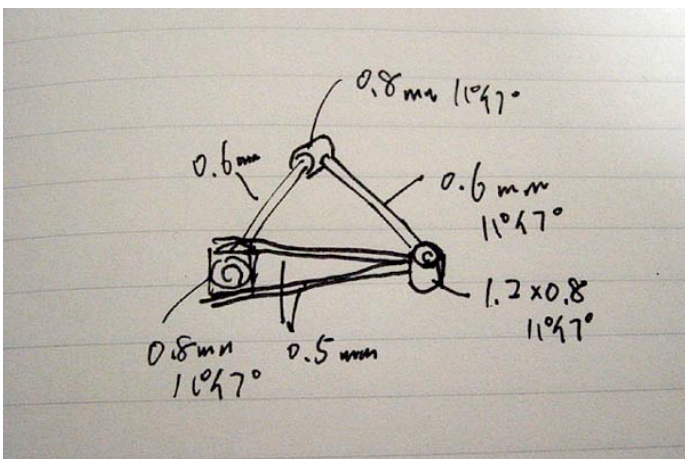 0.8mm パイプ
0.6mm
0.6mm
パイプ
1.2×0.8
パイプ
0.8mm
パイプ
0.5mm